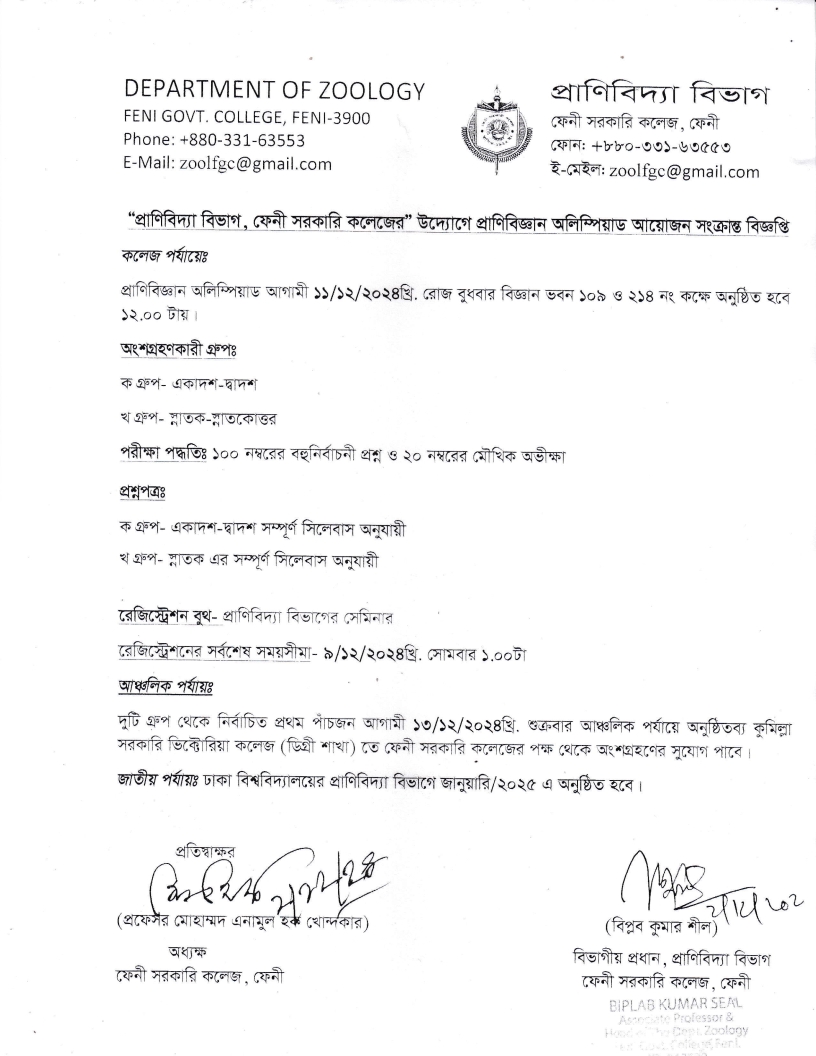 DEPARTMENT OF ZOOLOGY
FENI GOVT. COLLEGE, FENI-3900
Phone: +880-331-63553
E-Mail: zoolfgc@gmail.com
প্রাণিবিদ্যা বিভাগ
ফেনী সরকারি কলেজ, ফেনী
ফোন: +৮৮০-৩৩১-৬৩৫৫৩
ই-মেইল: zoolfgc@gmail.com
“প্রাণিবিদ্যা বিভাগ, ফেনী সরকারি কলেজের” উদ্যোগে প্রাণিবিজ্ঞান অলিম্পিয়াড আয়োজন সংক্রান্ত বিজ্ঞপ্তি
কলেজ পর্যায়েঃ
প্রাণিবিজ্ঞান অলিম্পিয়াড আগামী ১১/১২/২০২৪খ্রি. রোজ বুধবার বিজ্ঞান ভবন ১০৯ ও ২১৪ নং কক্ষে অনুষ্ঠিত হবে
১২.০০ টায়।
অংশগ্রহণকারী গ্রুপঃ
ক গ্রুপ- একাদশ-দ্বাদশ
খ গ্রুপ- স্নাতক-স্নাতকোত্তর
পরীক্ষা পদ্ধতিঃ ১০০ নম্বরের বহুনির্বাচনী প্রশ্ন ও ২০ নম্বরের মৌখিক অভীক্ষা
প্রশ্নপত্রঃ
ক গ্রুপ- একাদশ-দ্বাদশ সম্পূর্ণ সিলেবাস অনুযায়ী
খ গ্রুপ- স্নাতক এর সম্পূর্ণ সিলেবাস অনুযায়ী
রেজিস্ট্রেশন বুথ- প্রাণিবিদ্যা বিভাগের সেমিনার
রেজিস্ট্রেশনের সর্বশেষ সময়সীমা- ৯/১২/২০২৪খ্রি. সোমবার ১.০০টা
আঞ্চলিক পর্যায়ঃ
দুটি গ্রুপ থেকে নির্বাচিত প্রথম পাঁচজন আগামী ১৩/১২/২০২৪খ্রি. শুক্রবার আঞ্চলিক পর্যায়ে অনুষ্ঠিতব্য কুমিল্লা
সরকারি ভিক্টোরিয়া কলেজ (ডিগ্রী শাখা) তে ফেনী সরকারি কলেজের পক্ষ থেকে অংশগ্রহণের সুযোগ পাবে।
জাতীয় পর্যায়ঃ ঢাকা বিশ্ববিদ্যালয়ের প্রাণিবিদ্যা বিভাগে জানুয়ারি/২০২৫ এ অনুষ্ঠিত হবে।
প্রতিস্বাক্ষর
(প্রফেসর মোহাম্মদ এনামুল হক খোন্দকার)
অধ্যক্ষ
ফেনী সরকারি কলেজ, ফেনী
(বিপ্লব কুমার শীল)
বিভাগীয় প্রধান, প্রাণিবিদ্যা বিভাগ
ফেনী সরকারি কলেজ, ফেনী
BIPLAB KUMAR SEAL
Associate Professor &
Head of The Dept. Zoology